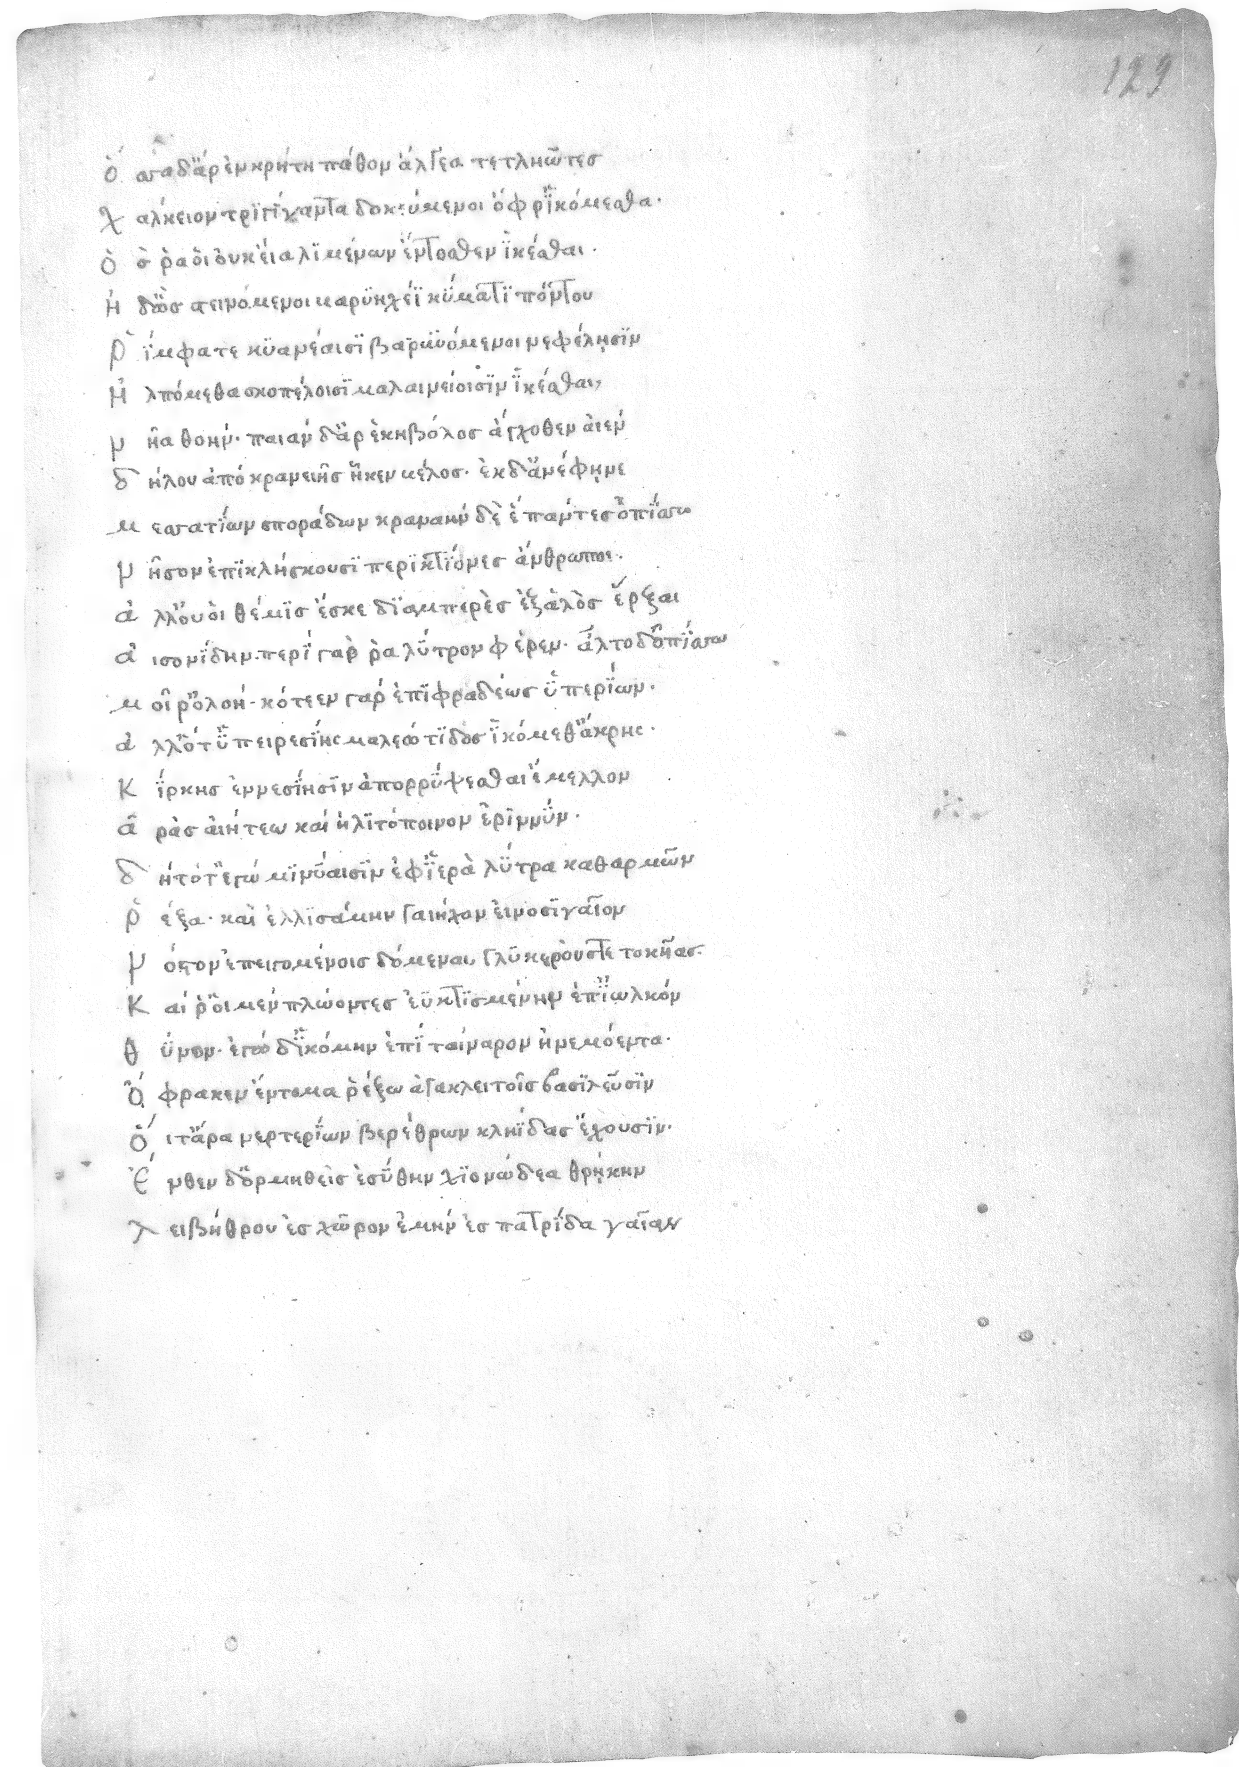 123
ὅσσα δ' ἄρ ἐν κρήτη πάθον ἄλγεα τετληῶτες
χάλκειον τριγίγαντα δοκεύμενοι ὄφρ' ἱκόμεσθα·
ὅς ῥα οἱ οὐκ εἴα λιμένων ἔντοσθεν ἱκέσθαι·
ἠδ' ὡς τεινόμενοι μαρϋηχέϊ κύματι πόντου
ῥίμφα τε κυανέαισι βαρυνόμενοι νεφέλησιν
ἠλπόμεθα σκοπέλοισι μαλαινείοισιν ἱκέσθαι,
νῆα θοήν· παιὰν δ' ἄρ ἑκηβόλος ἄγχοθεν αἰὲν
δήλου ἀπὸ κραναιῆς ἧκεν βέλος· ἐκ δ' ἀνέφηνε
μεσσατίων σποράδων κραναὴν δὲ ἑ πάντες ὀπίσσω
νῆσον ἐπικλήσκουσι περικτίονες ἄνθρωποι·
ἀλλ' οὔ οἱ θέμις ἔσκε διαμπερὲς ἐξ ἁλὸς ἔρξαι
αἰσονίδην· περὶ γάρ ῥα λύτρον φέρεν· ἆλτο δ' ὀπίσσω
μοῖρ' ὀλοή· κότεεν γὰρ ἐπιφραδέως ὑπερίων·
ἀλλ' ὅτ' ὑπειρεσίης μαλεώτιδος ἱκόμεθ' ἄκρης·
κίρκης ἐννεσίησιν ἀπορρύψεσθαι ἔμελλον
ἀρὰς αἰήτεω καὶ ἠλιτόποινον ἐριννύν·
δὴ τότ' ἐγὼ μινύαισιν ἐφ' ἱερὰ λύτρα καθαρμῶν
ῥέξα· καὶ ἐλλισάμην γαιήχον εἰνοσίγαῖον
νόστον ἐπειγομένοις δόμεναι, γλυκεροὺς τε τοκῆας·
καί ῥ' οἱ μὲν πλώοντες ἐϋκτισμένην ἐπ' ἰωλκόν
θύνον· ἐγὼ δ' ἱκόμην ἐπὶ ταίναρον ἠνεμόεντα·
ὄφρα κεν ἔντομα ῥέξω ἀγακλειτοῖς βασιλεῦσιν
οἵ τ' ἄρα νερτερίων βερέθρων κληῖδας ἔχουσιν·
ἔνθεν δ' ὁρμηθεὶς ἐσύθην χιονώδεα θρήκην
λειβήθρου ἐς χῶρον ἐμὴν ἐς πατρίδα γαῖαν